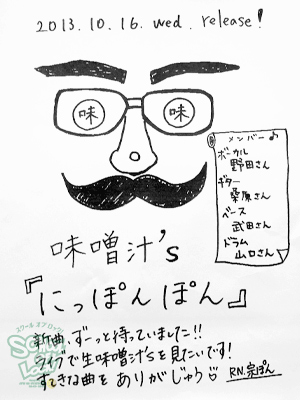 2013.10.16.wed. release!
味 味
メンバー♪
ボーカル
野田さん
ギター
桑原さん
ベース
武田さん
ドラム
山口さん
味噌汁's
『にっぽんぽん』
新曲、ずーっと待っていました!!
ライブで生味噌汁'sを見たいです!
すてきな曲をありがじゅう
RN.宗ぽん
スクール オブ ロック